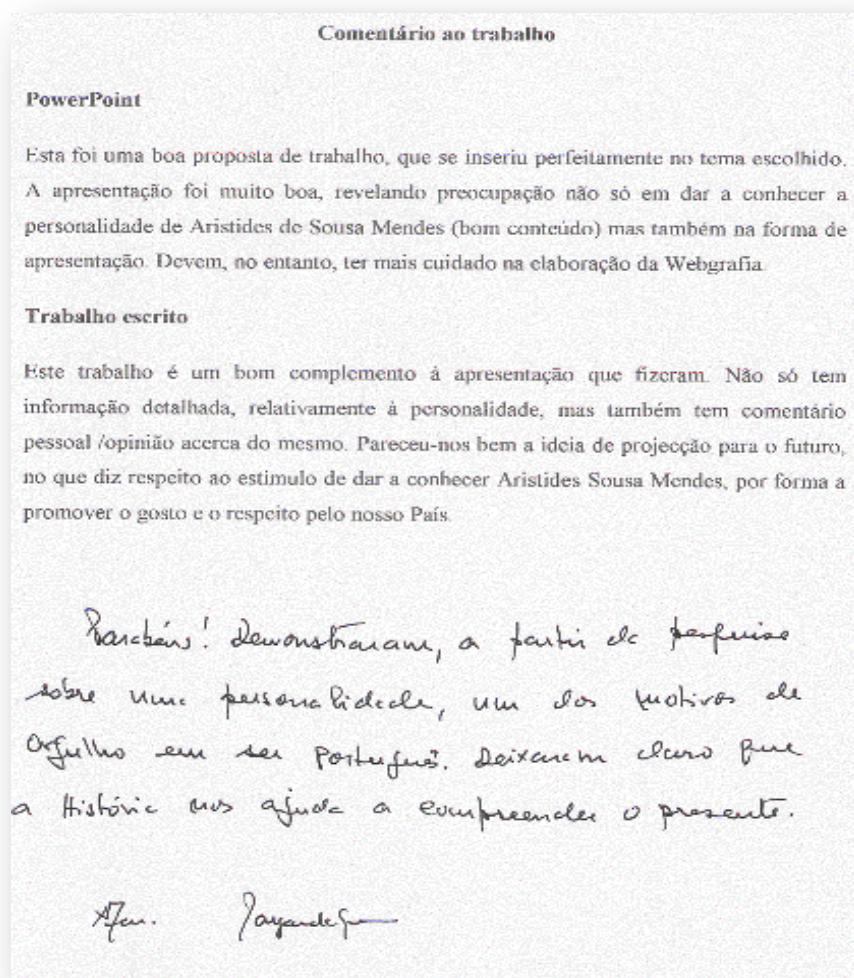 Comentário ao trabalho
PowerPoint
Esta foi uma boa proposta de trabalho, que se inseriu perfeitamente no tema escolhido.
A apresentação foi muito boa, revelando preocupação não só em dar a conhecer a
personalidade de Aristides de Sousa Mendes (bom conteúdo) mas também na forma de
apresentação. Devem, no entanto, ter mais cuidado na elaboração da Webgrafia.
Trabalho escrito
Este trabalho é um bom complemento à apresentação que fizeram. Não só tem
informação detalhada, relativamente à personalidade, mas também tem comentário
pessoal /opinião acerca do mesmo. Pareceu-nos bem a ideia de projecção para o futuro,
no que diz respeito ao estimulo de dar a conhecer Aristides Sousa Mendes, por forma a
promover o gosto e o respeito pelo nosso País.
Parabéns! Demonstraram, a partir da pesquisa
sobre uma personalidade, um dos motivos de
Orgulho em ser Português. Deixaram claro que
a História nos ajuda a compreender o presente.